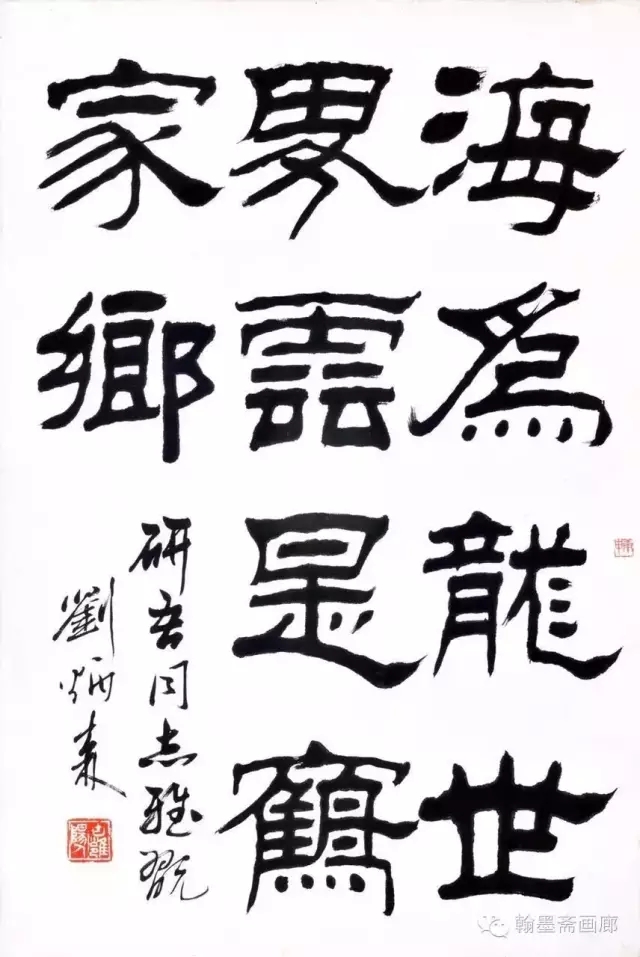 海為龍世
界雲是鶴
家鄉
研吾同志雅翫
劉炳森
翰墨斋画廊